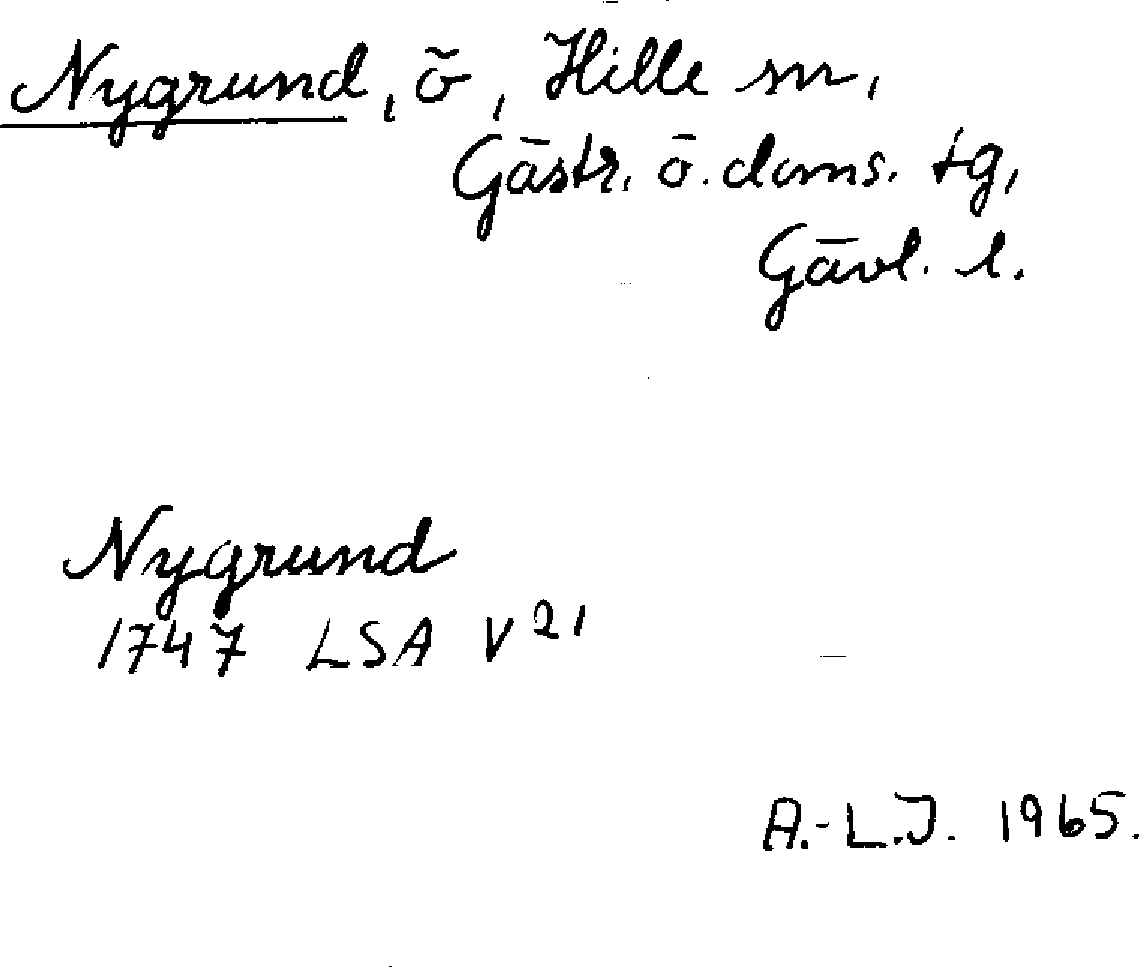 Nygrund, ö, Hille sn,
Gästr. ö. doms. tg,
Gävl. l.
Nygrund
1747 LSA V²¹
A.-L.J. 1965.